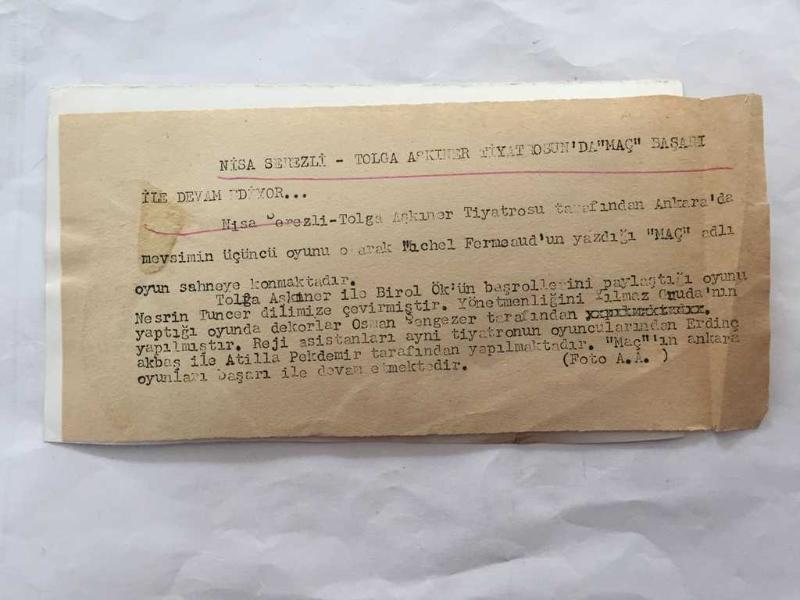 NİSA SEREZLİ - TOLGA AŞKINER TİYATROSUN'DA"MAÇ" BAŞARI
İLE DEVAM EDİYOR...
Nisa Serezli-Tolga Aşkıner Tiyatrosu tarafından Ankara'da
mevsimin üçüncü oyunu olarak Michel Fermeaud'un yazdığı "MAÇ" adlı
oyun sahneye konmaktadır.
Tolga Aşkıner ile Birol Ök'ün başrollerini paylaştığı oyunu
Nesrin Tuncer dilimize çevirmiştir. Yönetmenliğini Yılmaz Gruda'nın
yaptığı oyunda dekorlar Osman Şengezer tarafından
yapılmıştır. Reji asistanları ayni tiyatronun oyuncularından Erdinç
akbaş ile Atilla Pekdemir tarafından yapılmaktadır. "Maç"ın ankara
oyunları başarı ile devam etmektedir. (Foto A.A. )